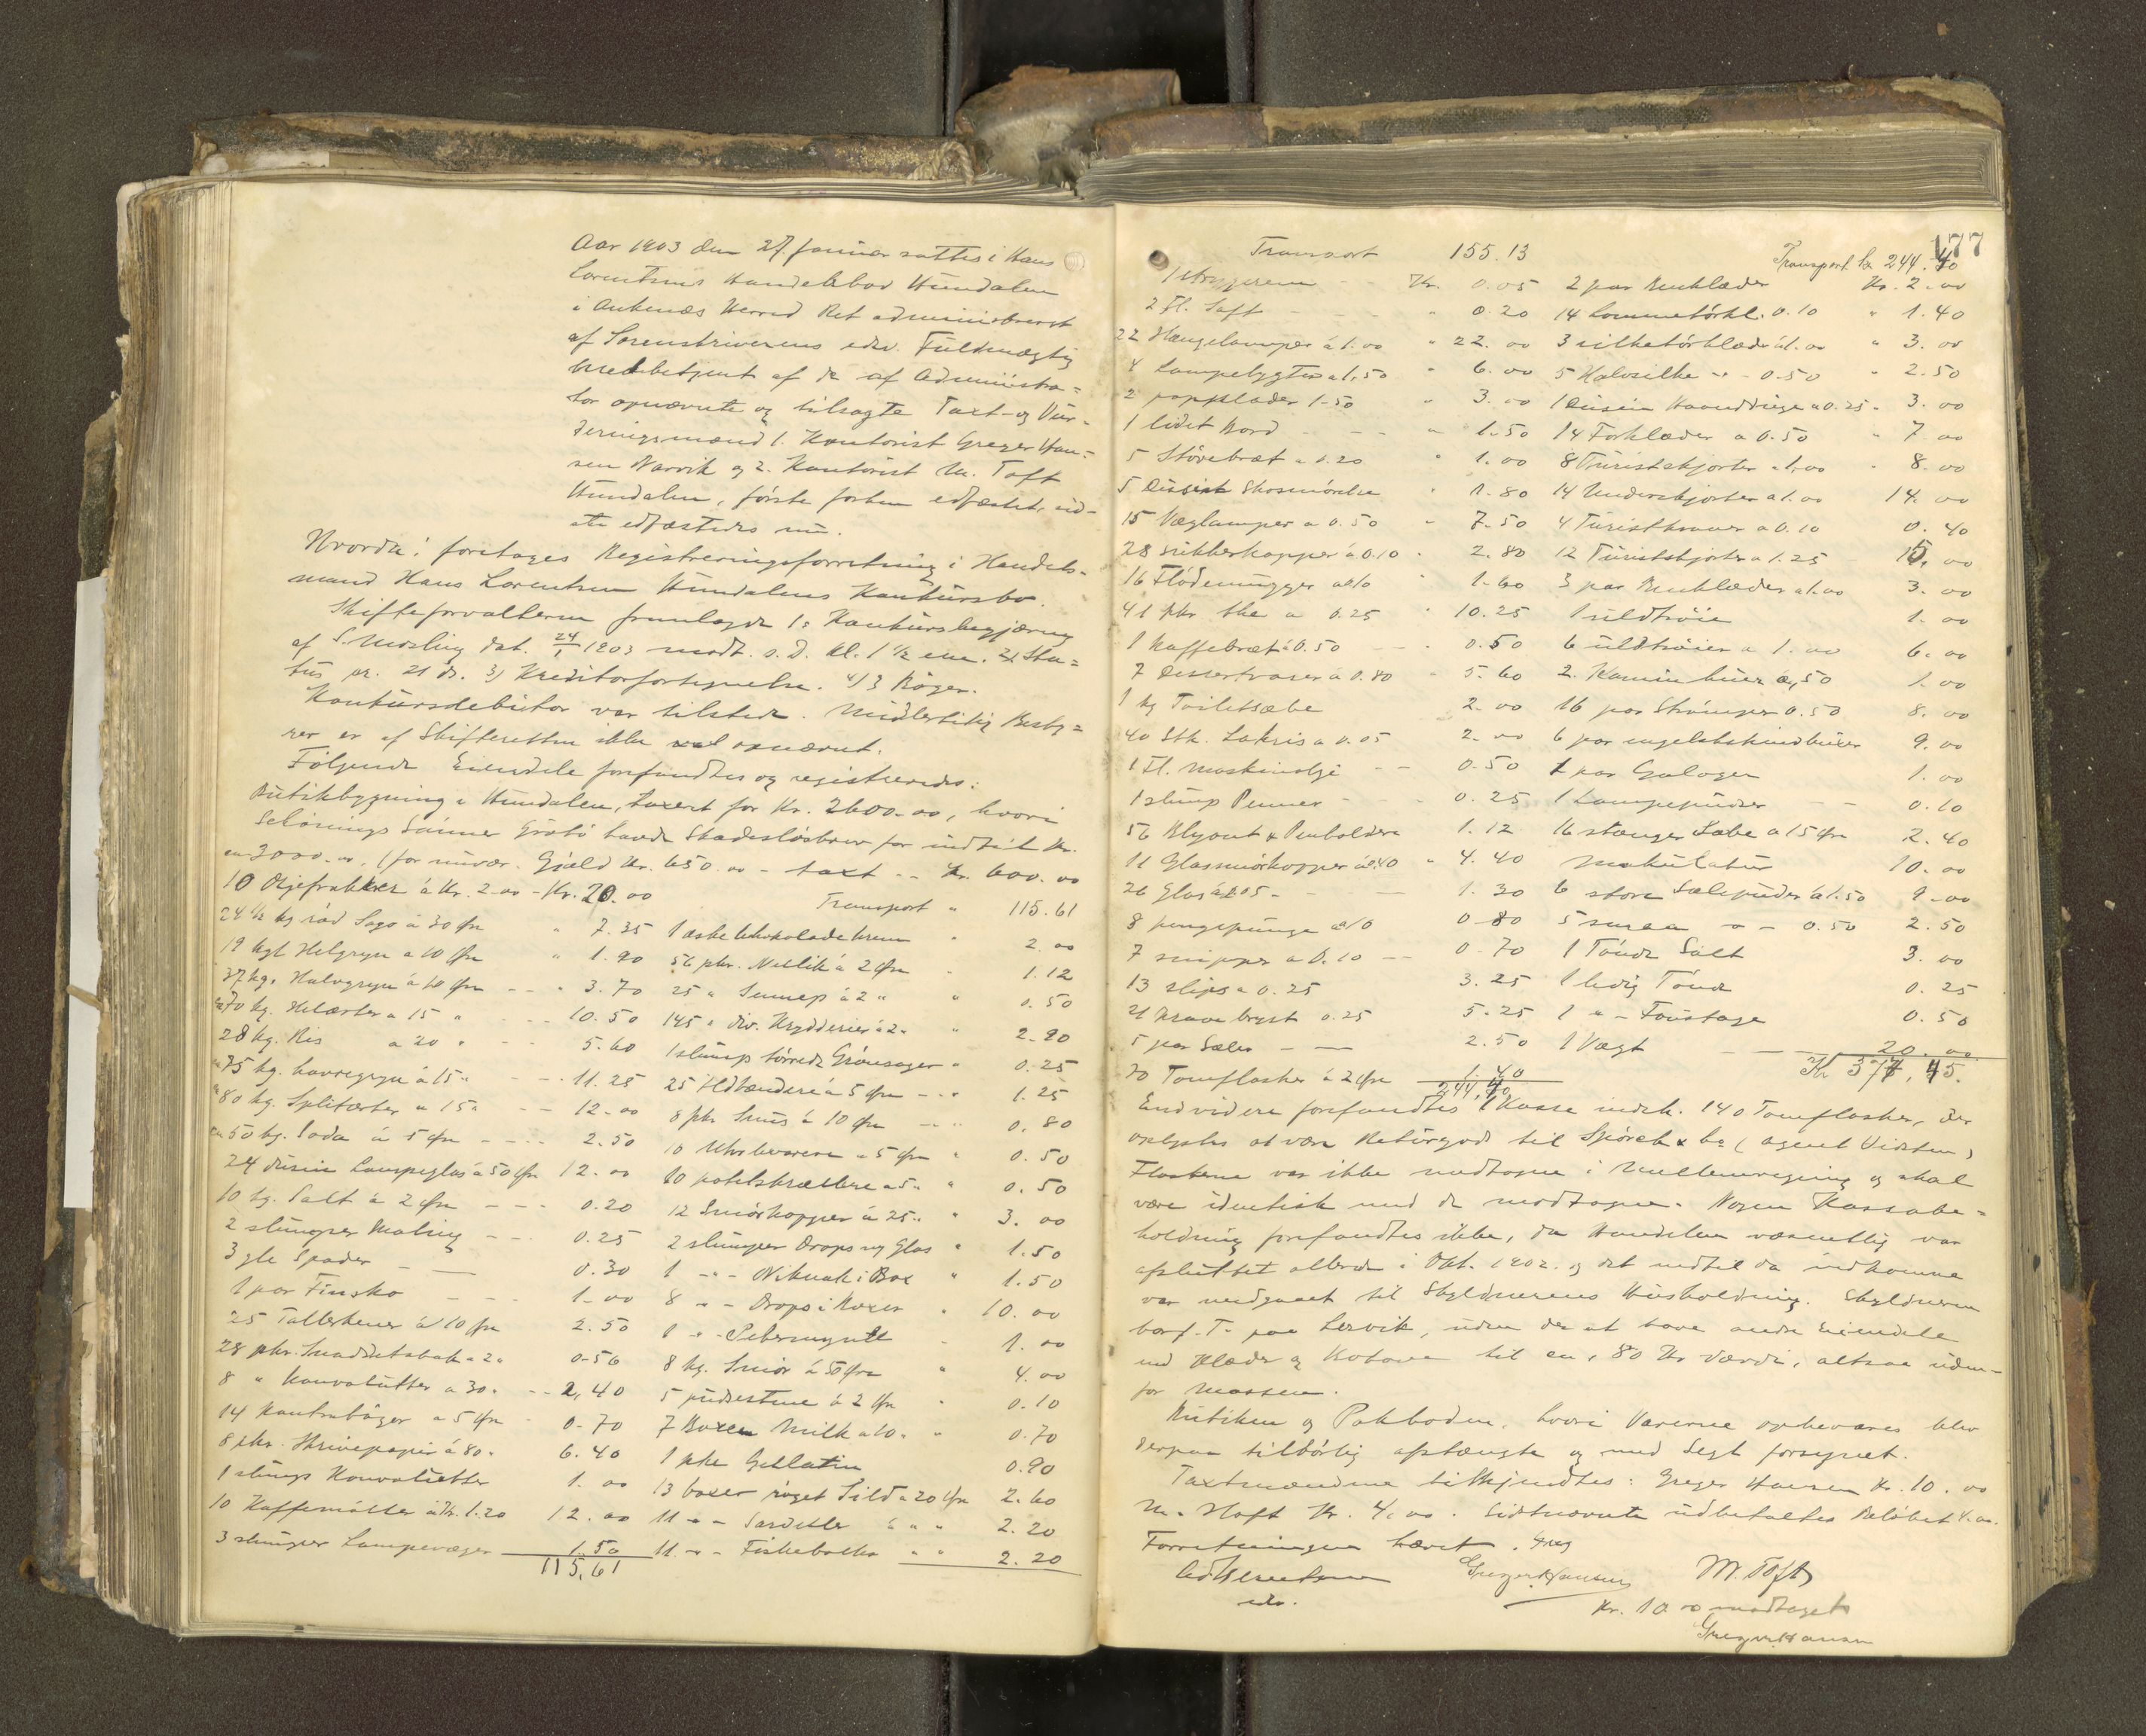 Aar 1903 den 27 januar sattes i Hans
Lorentsens Handelsbod Hundalen
i Ankenæs Herred Ret administreret
af Sorenskriverens edsv. Fuldmægtig
med betjent af de af Administra=
tor opnævnte og tilsagte Taxt- og Vur-
deringsmænd 1. Kontorist Greger Han=
sen Narvik og 2. Kontorist M. Toft
Hundalen, første forhen edfæstet, sid-
ste edfæstedes nu.
Hvorda: foretoges Registreringsforretning i Handels-
mand Hans Lorentsen Hundalens Konkursbo.
Skifteforvalteren fremlagde 1: Konkursbegjæring
af S. Mosling dat. 24/1 1903 modt. s. D. Kl. 1½ em. 2) Sta=
tus pr. 21 ds. 3) Kreditorfortegnelse. 4) 3 Bøger.
Konkursdebitor var tilstede. Midlertidig Besty=
rer er af Skifteretten ikke opnævnt.
Følgende Eiendele forefandtes og registreredes:
Butikbygning i Hundalen, taxeret for Kr. 2600.00, hvori
Schønings Sønner Grøtø havde Skadesløsbrev for indtil Kr.
3000.00, (for nuvær. Gjæld Kr. 650.00 - taxt -- Kr. 600.00
10 Oljefrakker á Kr. 2.00 - Kr. 20.00 Transport " 115.61
24½ kg rød Sago á 30 Øre " 7.35 1 æske chokolade krem " 2.00
19 kg Helgryn a 10 Øre " 1.90 56 pkr. Nellik á 2 Øre " 1.12
37 kg. Halvgryn á 10 Øre -- " 3.70 25 " Sennep á 2 " " 0.50
70 kg. Helærter a 15 " --- 10.50 145 " div. Krydderier á 2 " 2.90
28 kg. Ris a 20 " -- 5.60 1 slump tørrede Grønsager " 0.25
75 kg. havregryn á 15 " -- 11.25 25 Ildtændere á 5 Øre -- " 1.25
80 kg. Splitærter a 15 " -- 12.00 8 pk. Snus á 10 Øre -- " 0.80
50 kg. Soda á 5 Øre ---- 2.50 10 Uhrbevarere a 5 Øre " 0.50
24 dusin Lampeglas á 50 Øre 12.00 10 potetskrællere a 5 " " 0.50
10 kg. Salt á 2 Øre --- 0.20 12 Smørkopper á 25 " " 3.00
2 slumper Maling -- 0.25 2 slumper Drops og Glas " 1.50
3 gle Spader -- 0.30 1 -"- Niknak i Box " 1.50
1 par Finsko --- 1.00 8 -"- Drops i Boxer " 10.00
25 Tallerkener á 10 Øre 2.50 1 -"- Pebermynte - 1.00
28 pkr. Snaddetobak a 2 " 0.56 8 kg. Smør á 50 Øre " 4.00
8 " Konvolutter a 30 " -- 2,40 5 pudsestene á 2 Øre " 0.10
14 Kontrabøger a 5 Øre - 0.70 7 Boxer Milk a 10 " " 0.70
8 pkr. Skrivepapir á 80 " 6.40 1 pke Gellatin 0.90
1 slump Konvolutter 1.00 13 boxer røget Sild a 20 Øre 2.60
10 Kaffemøller á Kr. 1.20 12.00 11 -"- Sardeller " " 2.20
3 slumper Lampevæger 1.50 11 -"- Fiskeboller " " 2.20
115,61
177
Transport 155.13 Transport kr 244.40
1 strygerem -- Kr. 0.05 2 par Benklæder Kr. 2.00
2 Fl. Saft --- " 0.20 14 Lommetørkl. 0.10 " 1.40
22 Hængelamper á 1.00 " 22.00 3 silketørklæder á 1.00 " 3.00
4 Lampelygter a 1,50 " 6.00 5 Halvsilke -"- 0.50 " 2.50
2 1.50 " 3.00 1 Dusin a 0.25 " 3.00
1 lidet Bord --- " 1.50 14 Forklæder a 0.50 " 7.00
5 Støvebræt a 0.20 " 1.00 8 Turistskjorter a 1,00 " 8.00
5 Dusin Skosmørelse " 1.80 14 Underskjorter a 1.00 14.00
15 Væglamper a 0.50 " 7.50 4 Turistkraver a 0.10 0.40
28 sukkerkopper á 0.10 " 2.80 12 Turistskjorter a 1.25 15.00
16 Flødemugger a 10 " 1.60 3 par Benklæder a 1.00 3.00
41 pkr the a 0.25 " 10.25 1 uldtrøie 1.00
1 Kaffebræt á 0.50 -- 0.50 6 uldtrøier a 1.00 6.00
7 Dessertvaser á 0.80 " 5.60 2 50 1.00
1 kg Toiletsæbe 2.00 16 par Strømper 0.50 8.00
40 Stk. Lakris a 0.05 2.00 6 par engelskskindbuxer 9.00
1 Fl. Maskinolje -- 0.50 1 par Galoger 1.00
1 slump Penner - 0.25 1 Lampepudser -- 0.10
56 Blyant & Penholdere 1.12 16 stænger Sæbe a 15 Øre 2.40
11 Glassmørkopper á 0.40 " 4.40 Makulatur 10.00
26 Glas á 0.05 - 1.30 6 store Sælepuder á 1.50 9.00
8 pengepunge a 10 0.80 5 smaa -"- 0.50 2.50
7 snipper a 0.10 -- 0.70 1 Tønde Salt 3.00
13 slips a 0.25 3.25 1 ledig Tønde 0.25
21 Kravebryst 0.25 5.25 1 -"- Foustage 0.50
5 par Sæler -- 2.50 1 Vægt -- 20.00
70 Tomflasker á 2 Øre 1.40 Kr 377,45.
244,40
Endvidere forefandtes 1 Kasse indeh. 140 Tomflasker, der
oplystes at være Returgods til & Co (agent )
Flaskene var ikke medtagne i Mellemregning og skal
være identisk med de modtagne. Nogen Kassabe=
holdning forefandtes ikke, da Handelen væsentlig var
afsluttet allerede i Okt. 1902. og det indtil da indkomne
var medgaaet til Skyldnerens Husholdning. Skyldneren
bor f. T. paa Lervik, uden der at have andre Eiendele
end Klæder og Kobone til en. 80 Kr Værdi, altsaa uden-
for Massen.
Butiken og Pakboden, hvori Varerne opbevares blev
derpaa tilbørlig afstængte og med Segl forsynet.
Taxtmændene tilkjendtes: Greger Hansen Kr. 10.00
M. Hoft Kr. 4,00. Sidstnævnte udbetaltes Beløbet 4.00.
Forretningen hævet.
Greger Hansen M. Toft
eds. Kr. 10.00 modtaget
Greger Hansen